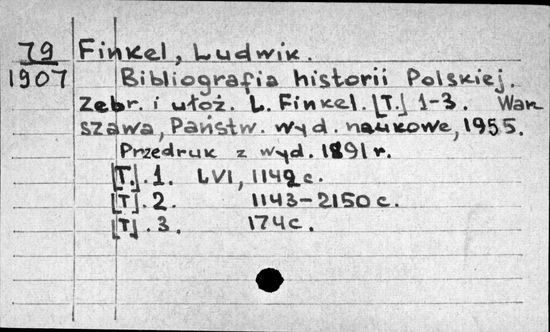 79 Finkel, Ludwik.
1907 Bibliografia historii Polskiej.
Zebr. i ułoż. L. Finkel. [T.] 1-3. War-
szawa, Państw. wyd. naukowe, 1955.
Przedruk z wyd. 1891 r.
[T.] . 1. LVI, 1142 c.
[T] . 2. 1143-2150 c.
[T] . 3. 174 c.